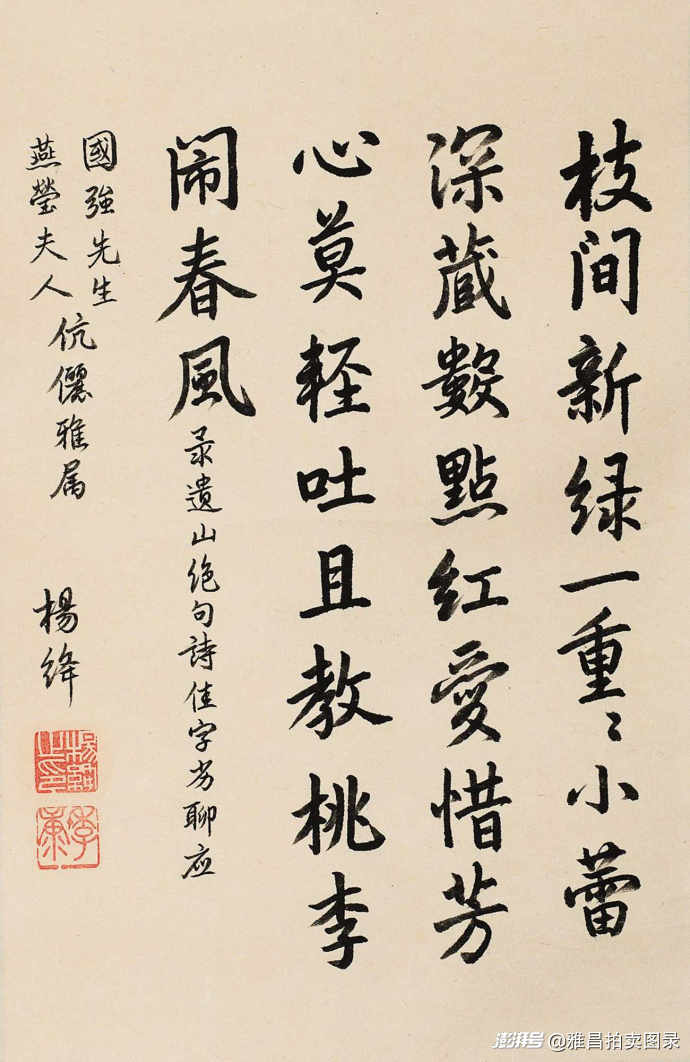 枝间新绿一重〻小蕾
深藏数點红愛惜芳
心莫轻吐且教桃李
闹春風
录遗山绝句詩佳字劣聊应
國强先生
燕瑩夫人
伉儷雅属
楊绛
澎湃号@雅昌拍卖图录